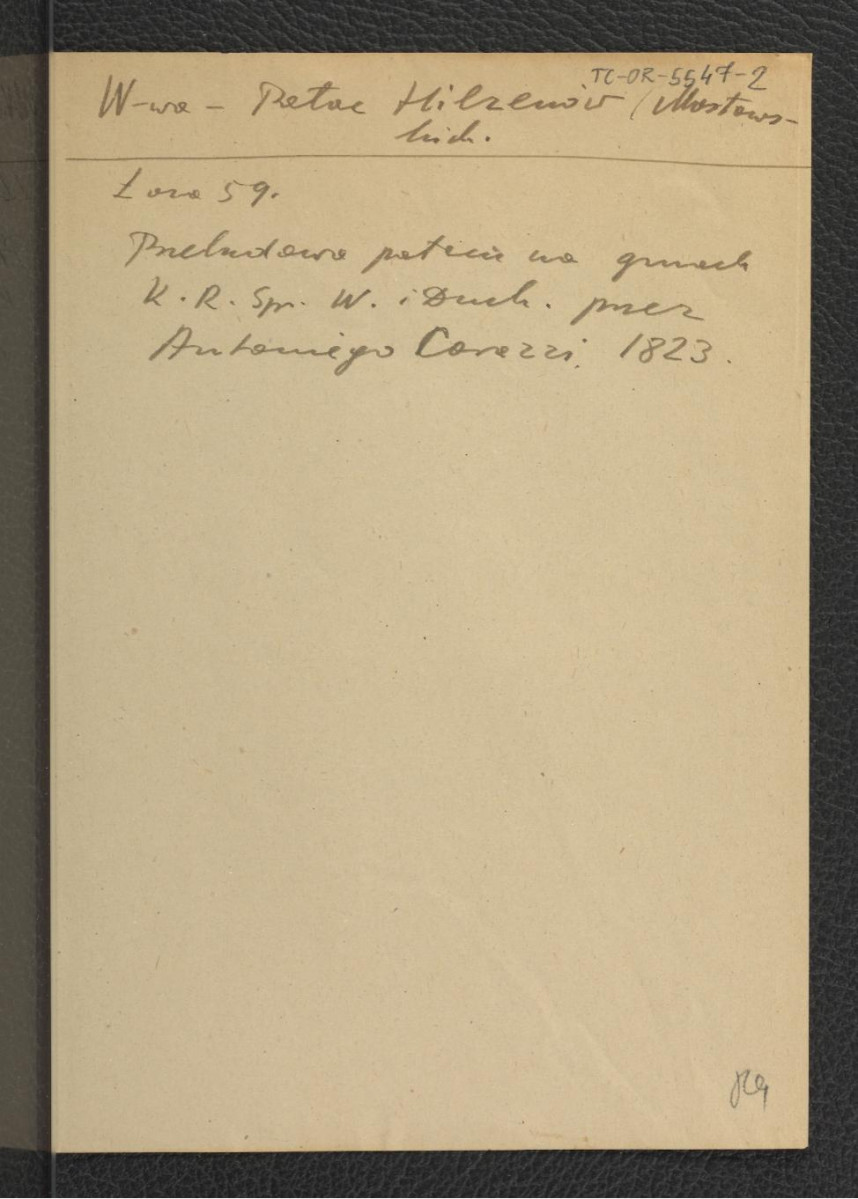 TC-OR-5547-2
W-wa – Pałac Hilzenów / Mostows-
kich.
Loza 59.
Przebudowa pałacu na gmach
K. R. Spr. W. i Duch. przez
Antoniego Corazzi. 1823.